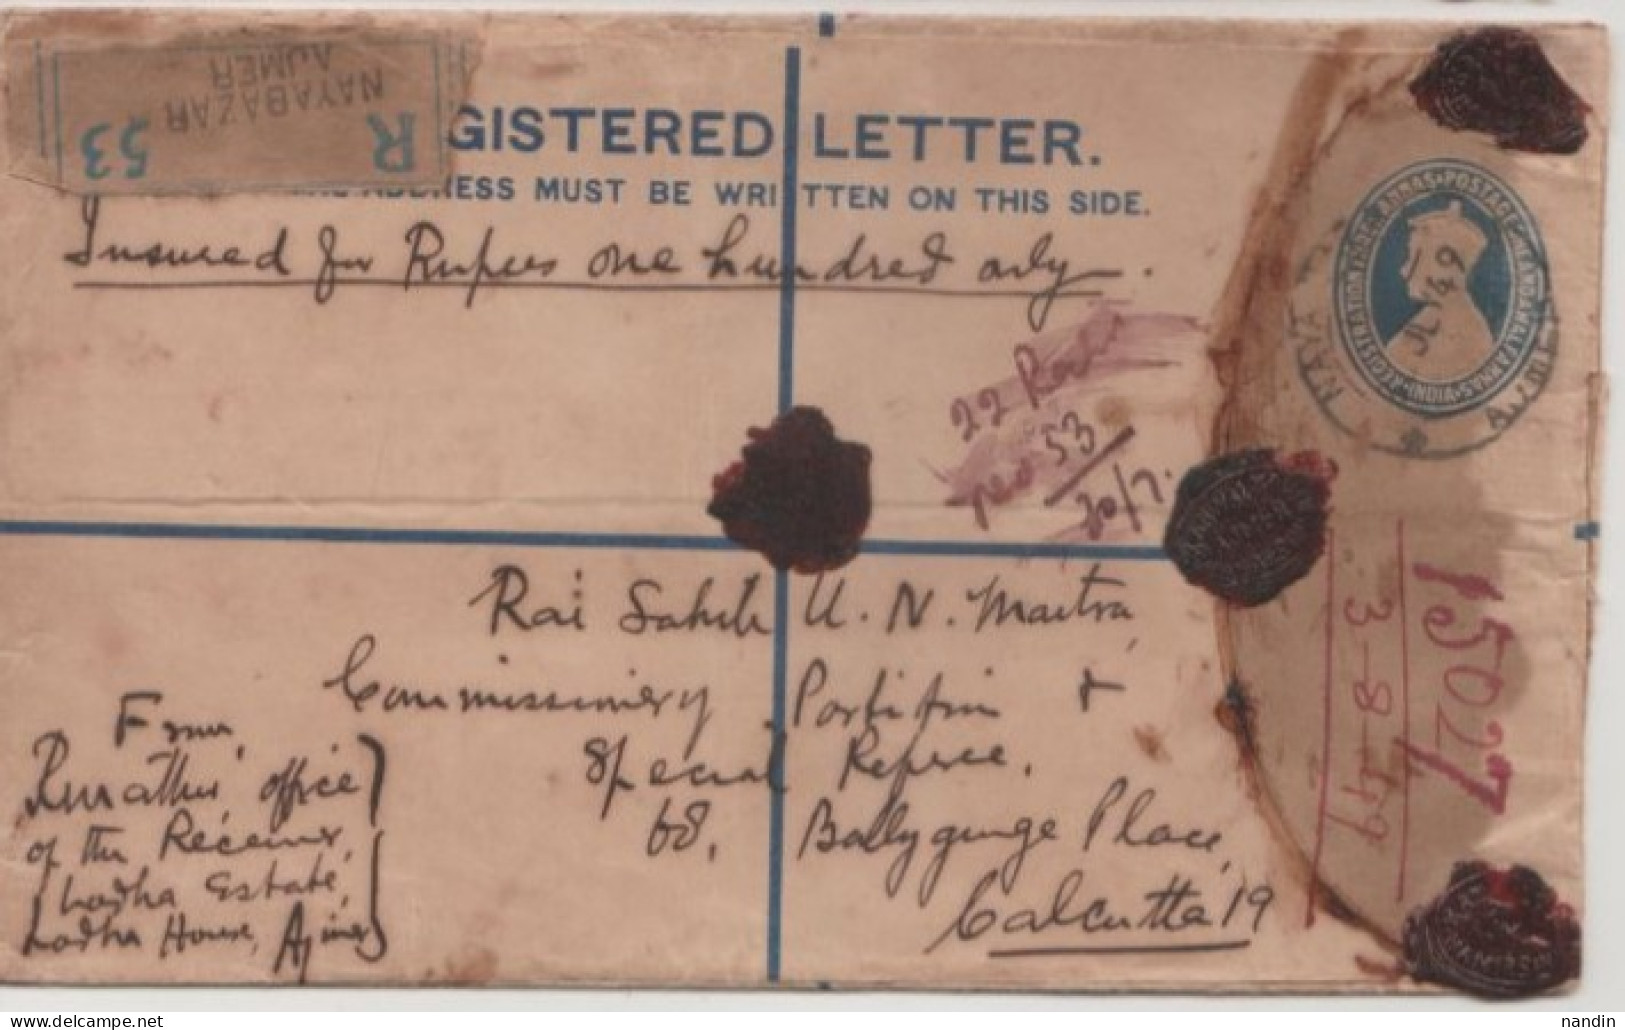 R 53
NAYABAZAR
AJMER
GISTERED LETTER.
ADDRESS MUST BE WRITTEN ON THIS SIDE.
Insured for Rupees one hundred only.
22
53
20/7.
REGISTRATION THREE ANNAS · POSTAGE
INDIA
JL 49
15027
3-8-49
Rai Sahib U. N. Maitra,
Commissioner of Partition &
Special Referee,
68, Ballygunge Place,
Calcutta 19
From,
office
of the Receiver,
Lodha Estate,
Lodha House, Ajmer
nandin